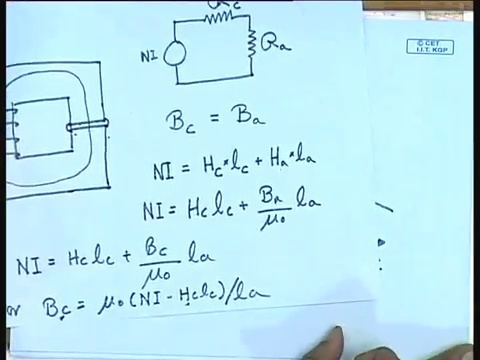 R_c
NI
R_a
© CET
I.I.T. KGP
B_c = B_a
NI = H_c * l_c + H_a * l_a
NI = H_c l_c + B_a/μ_0 l_a
NI = H_c l_c + B_c/μ_0 l_a
or B_c = μ_0 (NI - H_c l_c)/l_a